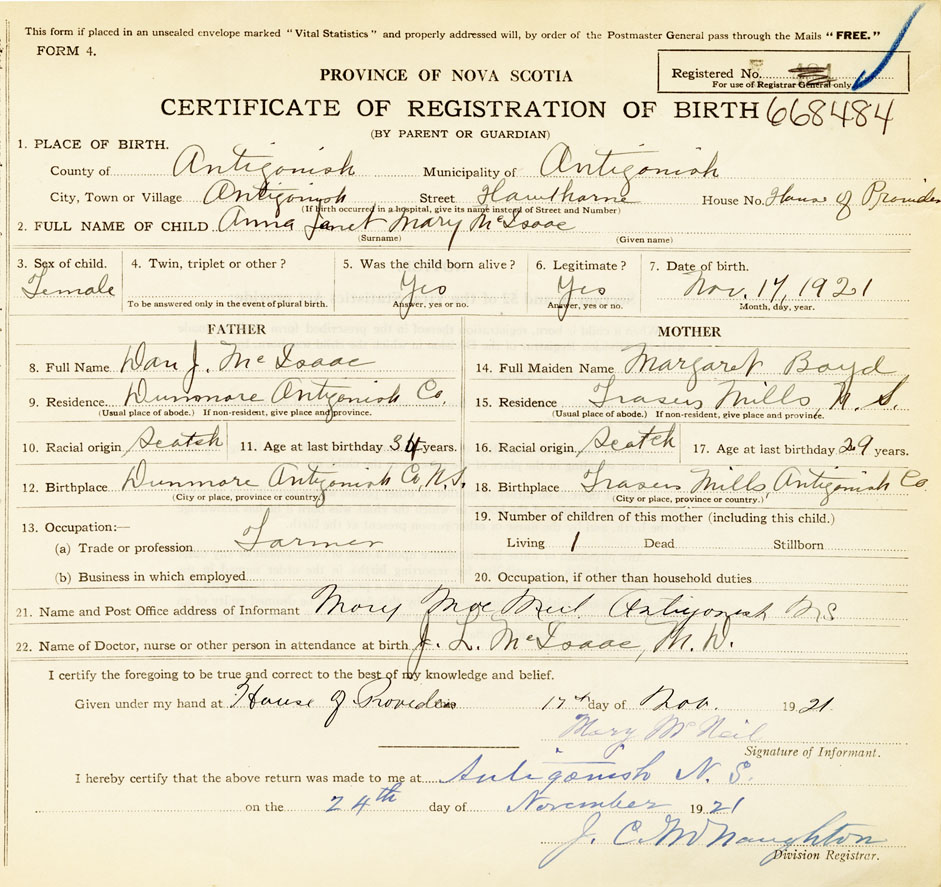 This form if placed in an unsealed envelope marked "Vital Statistics" and properly addressed will, by order of the Postmaster General pass through the Mails "FREE."
FORM 4.
Registered No.
For use of Registrar General only
PROVINCE OF NOVA SCOTIA
CERTIFICATE OF REGISTRATION OF BIRTH 668484
(BY PARENT OR GUARDIAN)
1. PLACE OF BIRTH.
County of Antigonish Municipality of Antigonish
City, Town or Village Antigonish Street Hawthorne House No. House of Providen
(If birth occurred in a hospital, give its name instead of Street and Number)
2. FULL NAME OF CHILD Anna Janet Mary McIsaac
(Surname) (Given name)
3. Sex of child. 4. Twin, triplet or other? 5. Was the child born alive? 6. Legitimate? 7. Date of birth.
Female Yes Yes Nov. 17, 1921
To be answered only in the event of plural birth. Answer, yes or no. Answer, yes or no. Month, day, year.
FATHER MOTHER
8. Full Name Dan J. McIsaac 14. Full Maiden Name Margaret Boyd
9. Residence Dunmore Antigonish Co. 15. Residence Frasers Mills, N. S.
(Usual place of abode.) If non-resident, give place and province. (Usual place of abode.) If non-resident, give place and province.
10. Racial origin Scotch 11. Age at last birthday 34 years. 16. Racial origin Scotch 17. Age at last birthday 29 years.
12. Birthplace Dunmore Antigonish Co, N.S. 18. Birthplace Frasers Mills, Antigonish Co.
(City or place, province or country.) (City or place, province or country.)
13. Occupation:— 19. Number of children of this mother (including this child.)
(a) Trade or profession Farmer Living 1 Dead Stillborn
(b) Business in which employed 20. Occupation, if other than household duties
21. Name and Post Office address of Informant Mary Mac Neil Antigonish NS
22. Name of Doctor, nurse or other person in attendance at birth J. L. McIsaac, M.D.
I certify the foregoing to be true and correct to the best of my knowledge and belief.
Given under my hand at House of Providence 17th day of Nov. 1921.
Mary McNeil
Signature of Informant.
I hereby certify that the above return was made to me at Antigonish N. S.
on the 24th day of November 1921
J. C. McNaughton
Division Registrar.